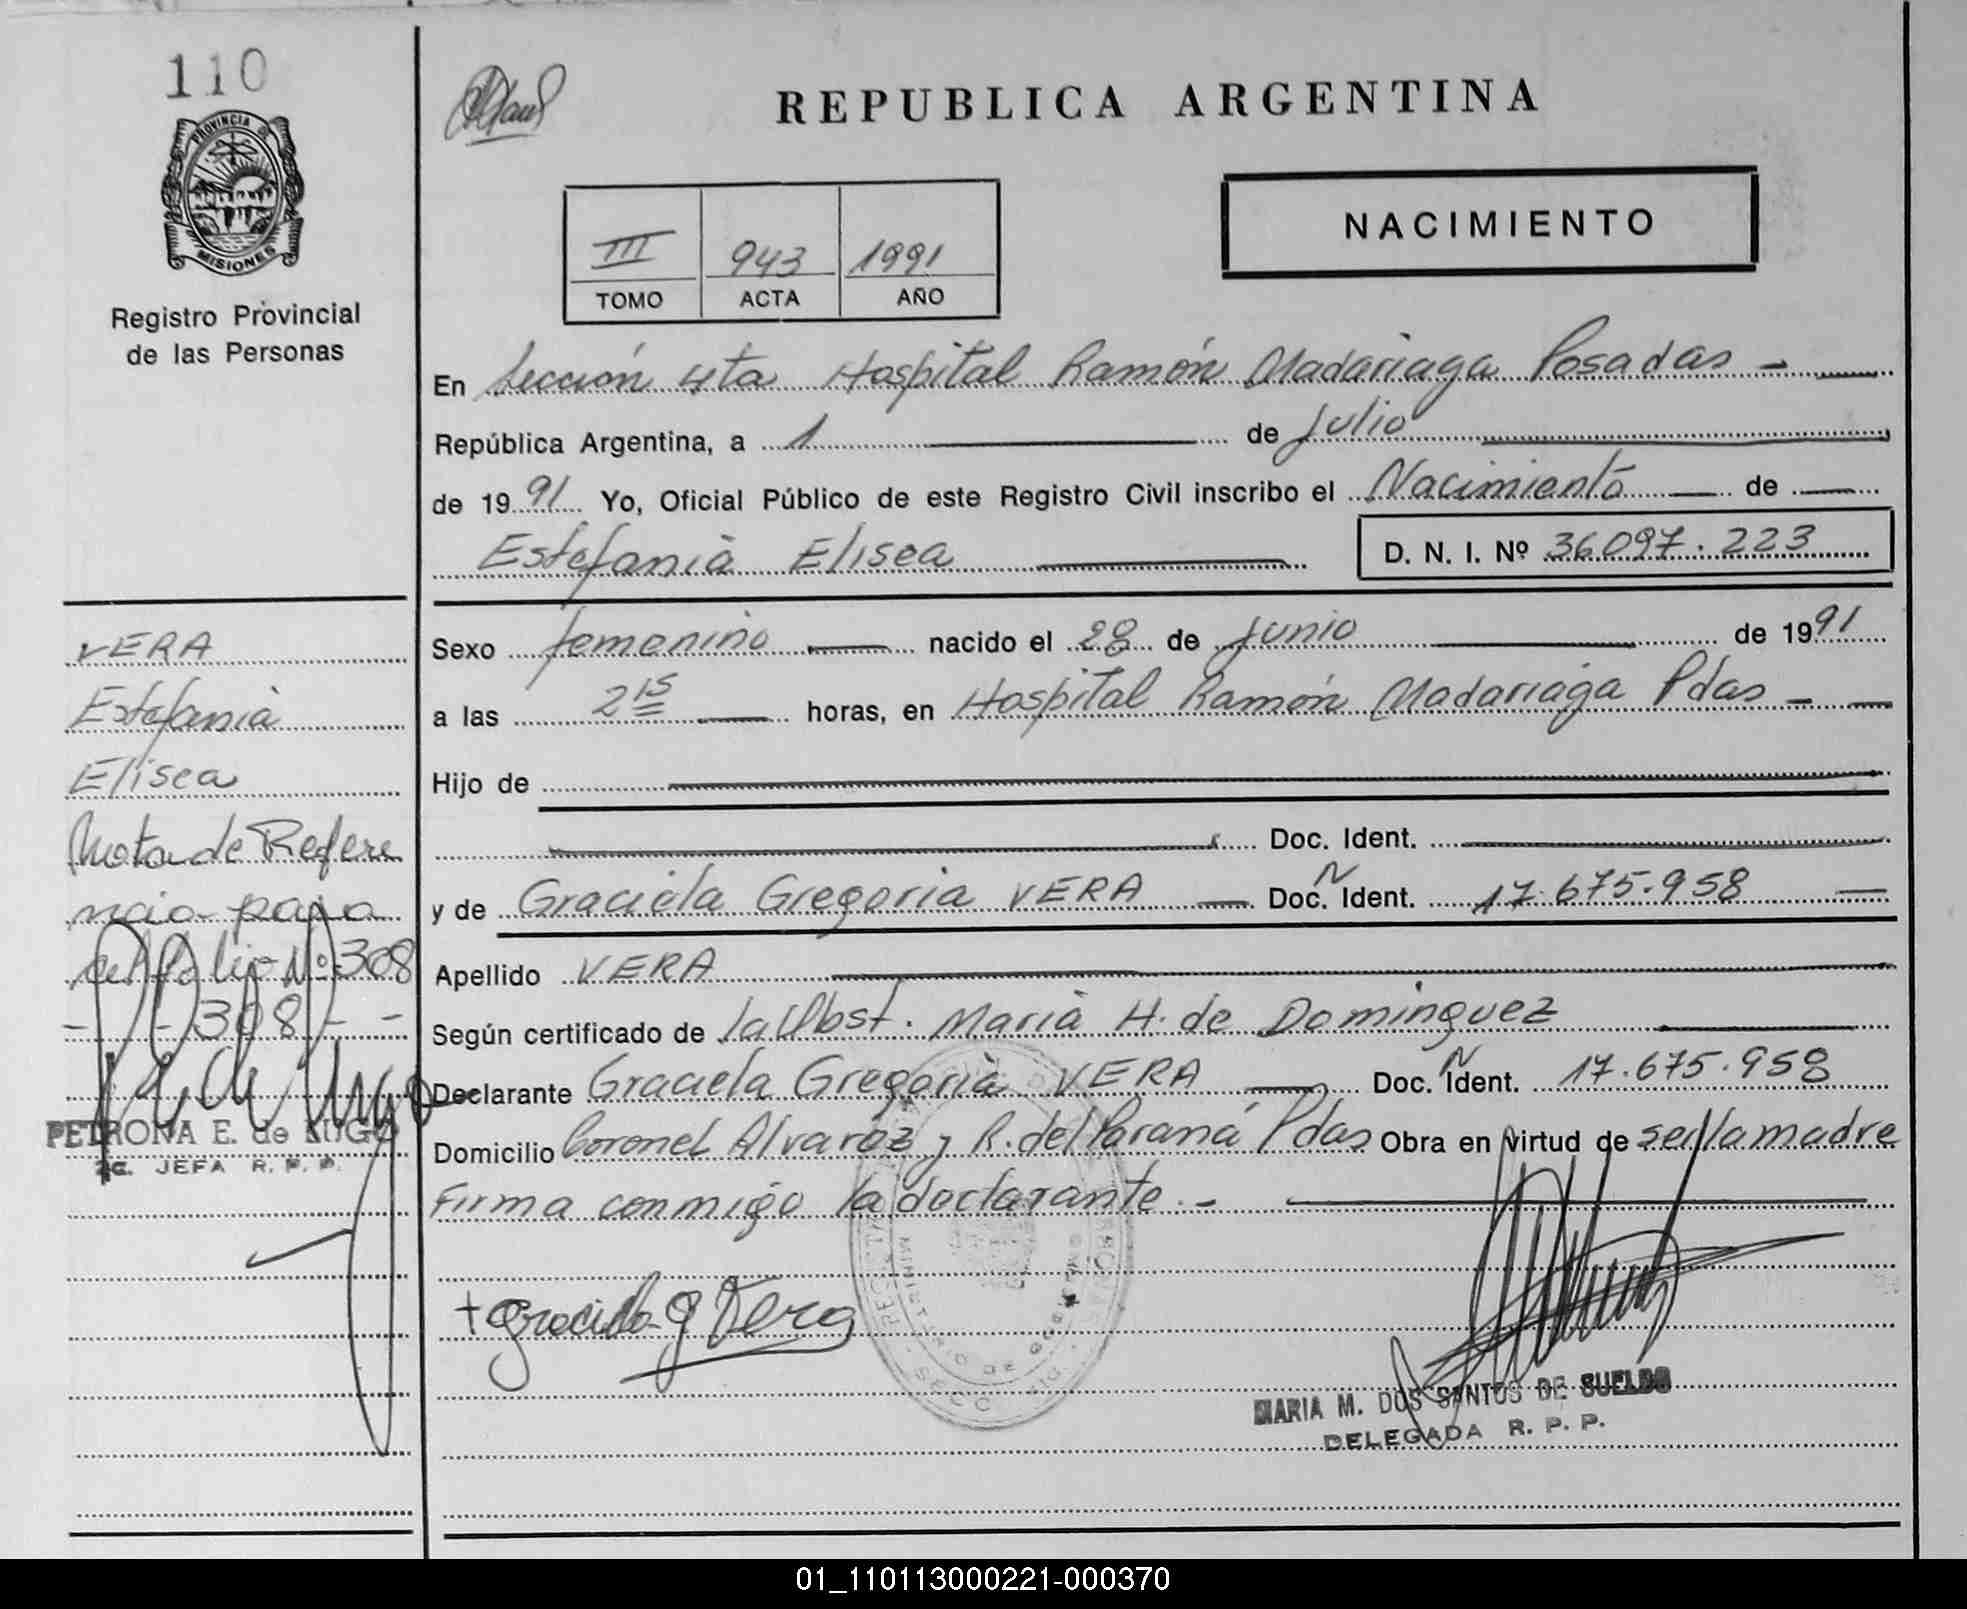 110
PROVINCIA DE
MISIONES
Registro Provincial
de las Personas
REPUBLICA ARGENTINA
III 943 1991
TOMO ACTA AÑO
NACIMIENTO
En Sección 4ta Hospital Ramón Madariaga Posadas -
República Argentina, a 1 de Julio
de 1991 Yo, Oficial Público de este Registro Civil inscribo el Nacimiento de
Estefanía Elisea D. N. I. Nº 36.097.223
Sexo femenino nacido el 28 de Junio de 1991
a las 2 15 horas, en Hospital Ramón Madariaga Pdas -
Hijo de
Doc. Ident.
y de Graciela Gregoria VERA Doc. N Ident. 17.675.958
Apellido VERA
Según certificado de la Obst. María H. de Dominguez
Declarante Graciela Gregoria VERA Doc. N Ident. 17.675.958
Domicilio Coronel Alvarez y R. del Paraná Pdas Obra en virtud de ser la madre
Firma conmigo la declarante. -
+ Graciela G Vera
MARIA M. DOS SANTOS DE SUELDO
DELEGADA R. P. P.
VERA
Estefanía
Elisea
Nota de Refere
ncia pasa
al folio Nº 308
- - 308 - -
PETRONA E. de LUGO
JEFA R. P. P.
01_110113000221-000370